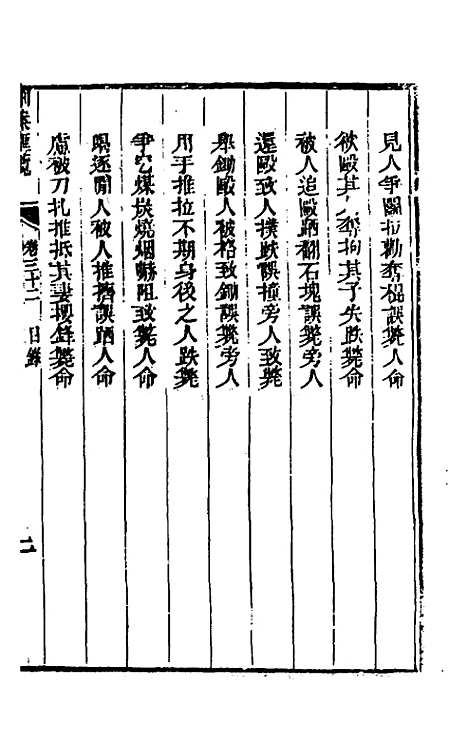 見人爭鬭拉勸奪棍誤斃人命
彼毆其人奪拘其子失跌斃命
被人追毆踢翻石塊誤斃旁人
還毆致人撲跌誤撞旁人致斃
舉鋤毆人被格致鋤誤斃旁人
用手推拉不期身後之人跌斃
爭宅煤炭燒烟嚇阻致斃人命
喝逐閒人被人推擠誤跴人命
慮被刀扎推抵其妻撲鋒斃命
刑案匯覽 卷三十二 目錄 二